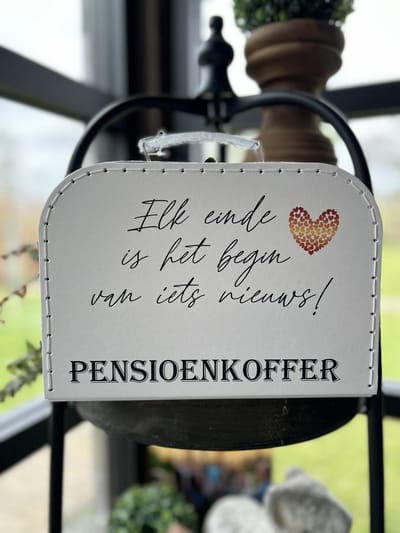 Elk einde
is het begin
van iets nieuws!
PENSIOENKOFFER